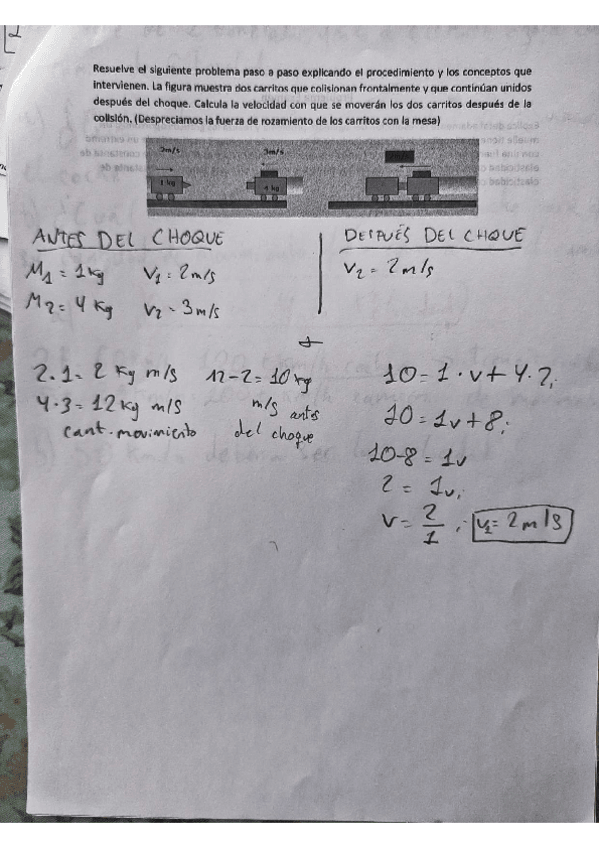 Resuelve el siguiente problema paso a paso explicando el procedimiento y los conceptos que
intervienen. La figura muestra dos carritos que colisionan frontalmente y que continúan unidos
después del choque. Calcula la velocidad con que se moverán los dos carritos después de la
colisión. (Despreciamos la fuerza de rozamiento de los carritos con la mesa)
2m/s 3m/s
1 kg 4 kg
ANTES DEL CHOQUE DESPUÉS DEL CHOQUE
M1 = 1kg V1 = 2m/s V2 = 2m/s
M2 = 4 Kg V2 - 3m/s
+
2·1= 2 Kg m/s 12-2=10 kg 10=1·v+4·2;
4·3=12Kg m/s m/s antes 10=1v+8;
cant. movimiento del choque 10-8=1v
2 = 1v;
v=2/1; v1=2m/s